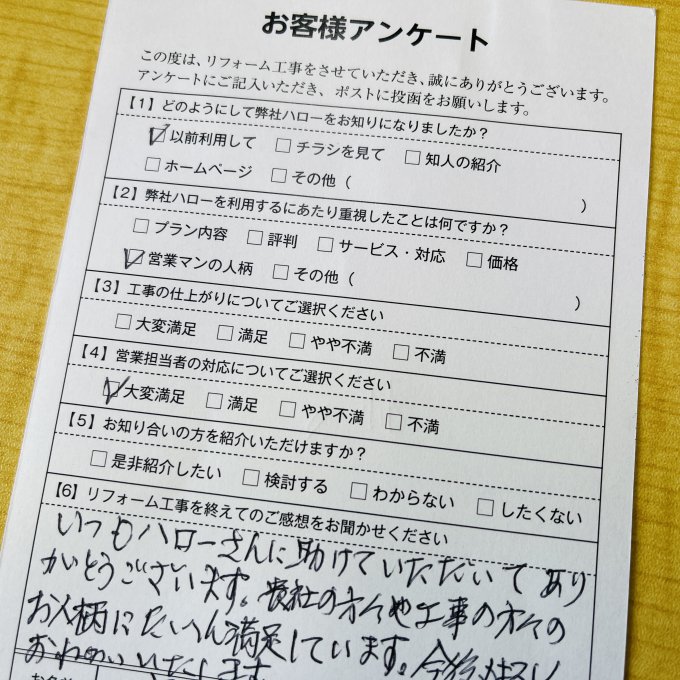 お客様アンケート
この度は、リフォーム工事をさせていただき、誠にありがとうございます。
アンケートにご記入いただき、ポストに投函をお願いします。
【1】どのようにして弊社ハローをお知りになりましたか？
☑以前利用して □チラシを見て □知人の紹介
□ホームページ □その他（ ）
【2】弊社ハローを利用するにあたり重視したことは何ですか？
□プラン内容 □評判 □サービス・対応 □価格
☑営業マンの人柄 □その他（ ）
【3】工事の仕上がりについてご選択ください
□大変満足 □満足 □やや不満 □不満
【4】営業担当者の対応についてご選択ください
☑大変満足 □満足 □やや不満 □不満
【5】お知り合いの方を紹介いただけますか？
□是非紹介したい □検討する □わからない □したくない
【6】リフォーム工事を終えてのご感想をお聞かせください
いつもハローさんに助けていただいてあり
がとうございます。貴社の方々や工事の方々の
お人柄にたいへん満足しています。今後
おねがいいたします